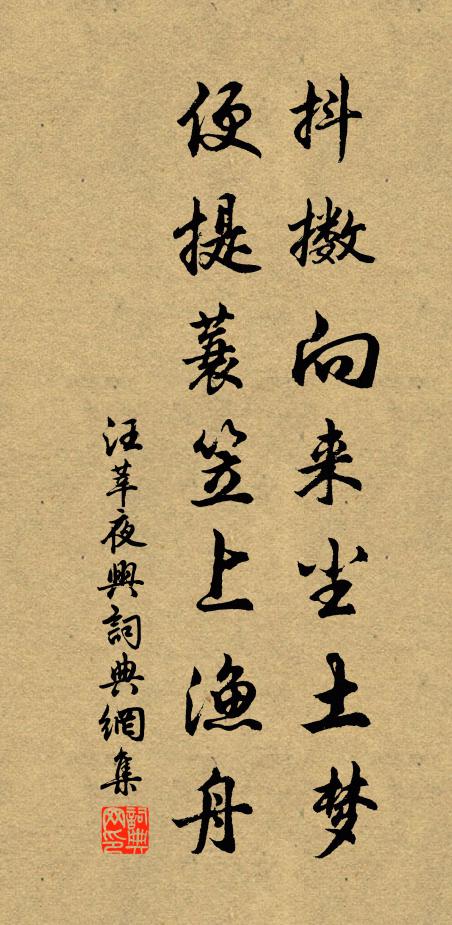 抖擞向来尘土梦
便提蓑笠上渔舟
汪莘夜興詞典網集
詞典网印